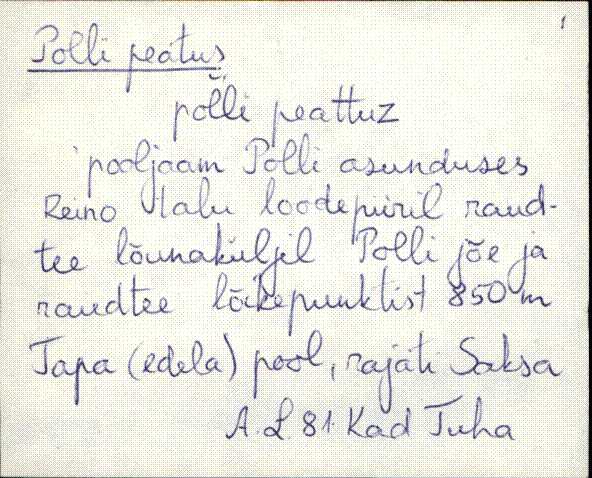 1
Polli peatus
pol̆li peattuz
'pooljaam Polli asunduses
Reino talu loodepiiril raud-
tee lõunaküljel Polli jõe ja
raudtee lõikepunktist 850 m
Tapa (edela) pool, rajati Saksa
A. L. 81. Kad Tuha